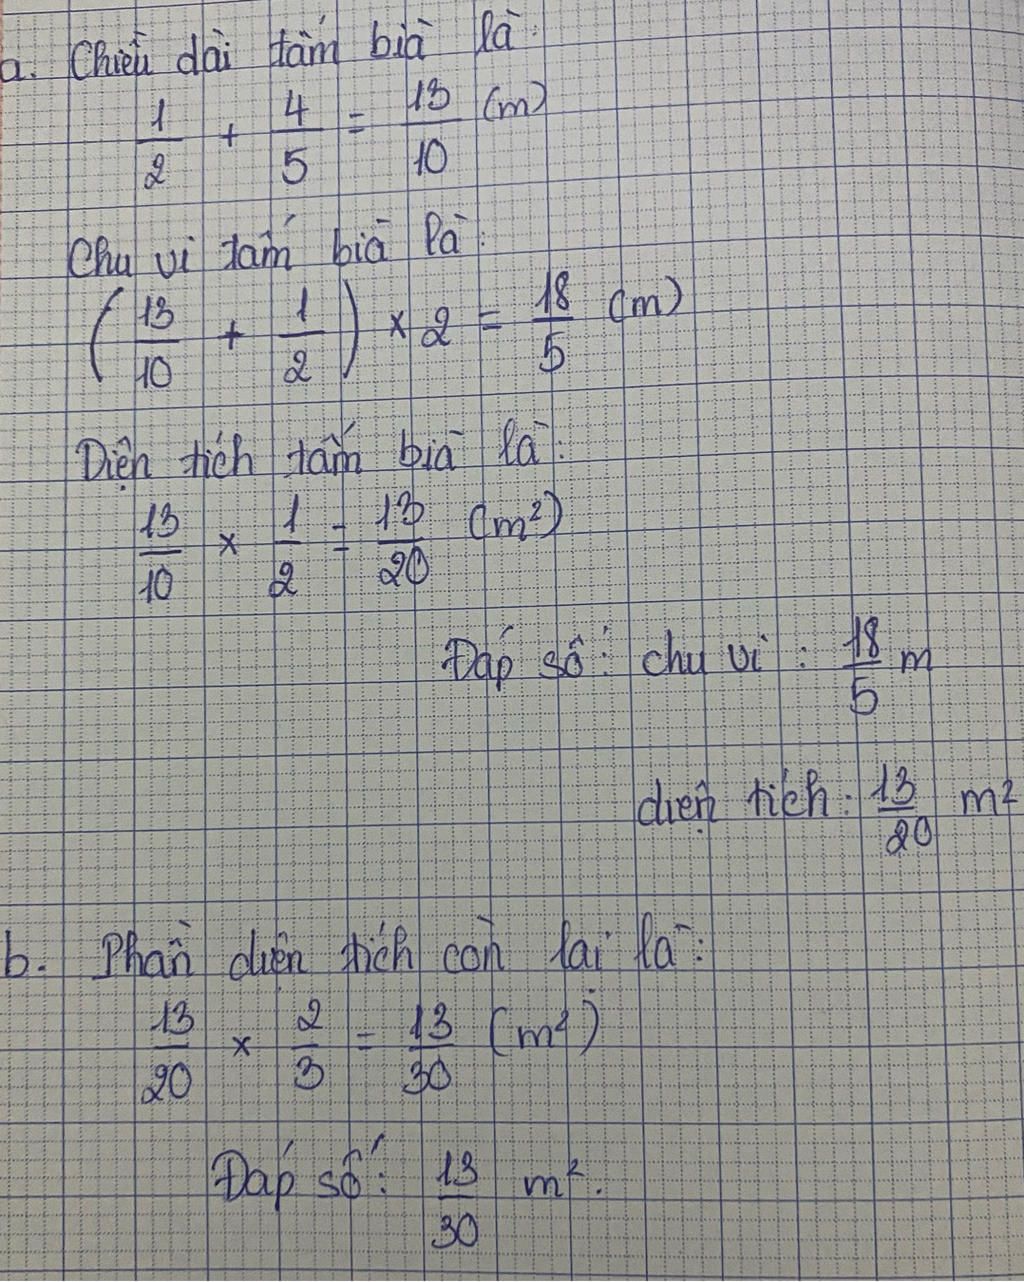 a. Chiều dài tấm bìa là:
1/2 + 4/5 = 13/10 (m)
Chu vi tấm bìa là:
(13/10 + 1/2) × 2 = 18/5 (m)
Diện tích tấm bìa là:
13/10 × 1/2 = 13/20 (m²)
Đáp số: chu vi : 18/5 m
diện tích: 13/20 m²
b. Phần diện tích còn lại là:
13/20 × 2/3 = 13/30 (m²)
Đáp số: 13/30 m².